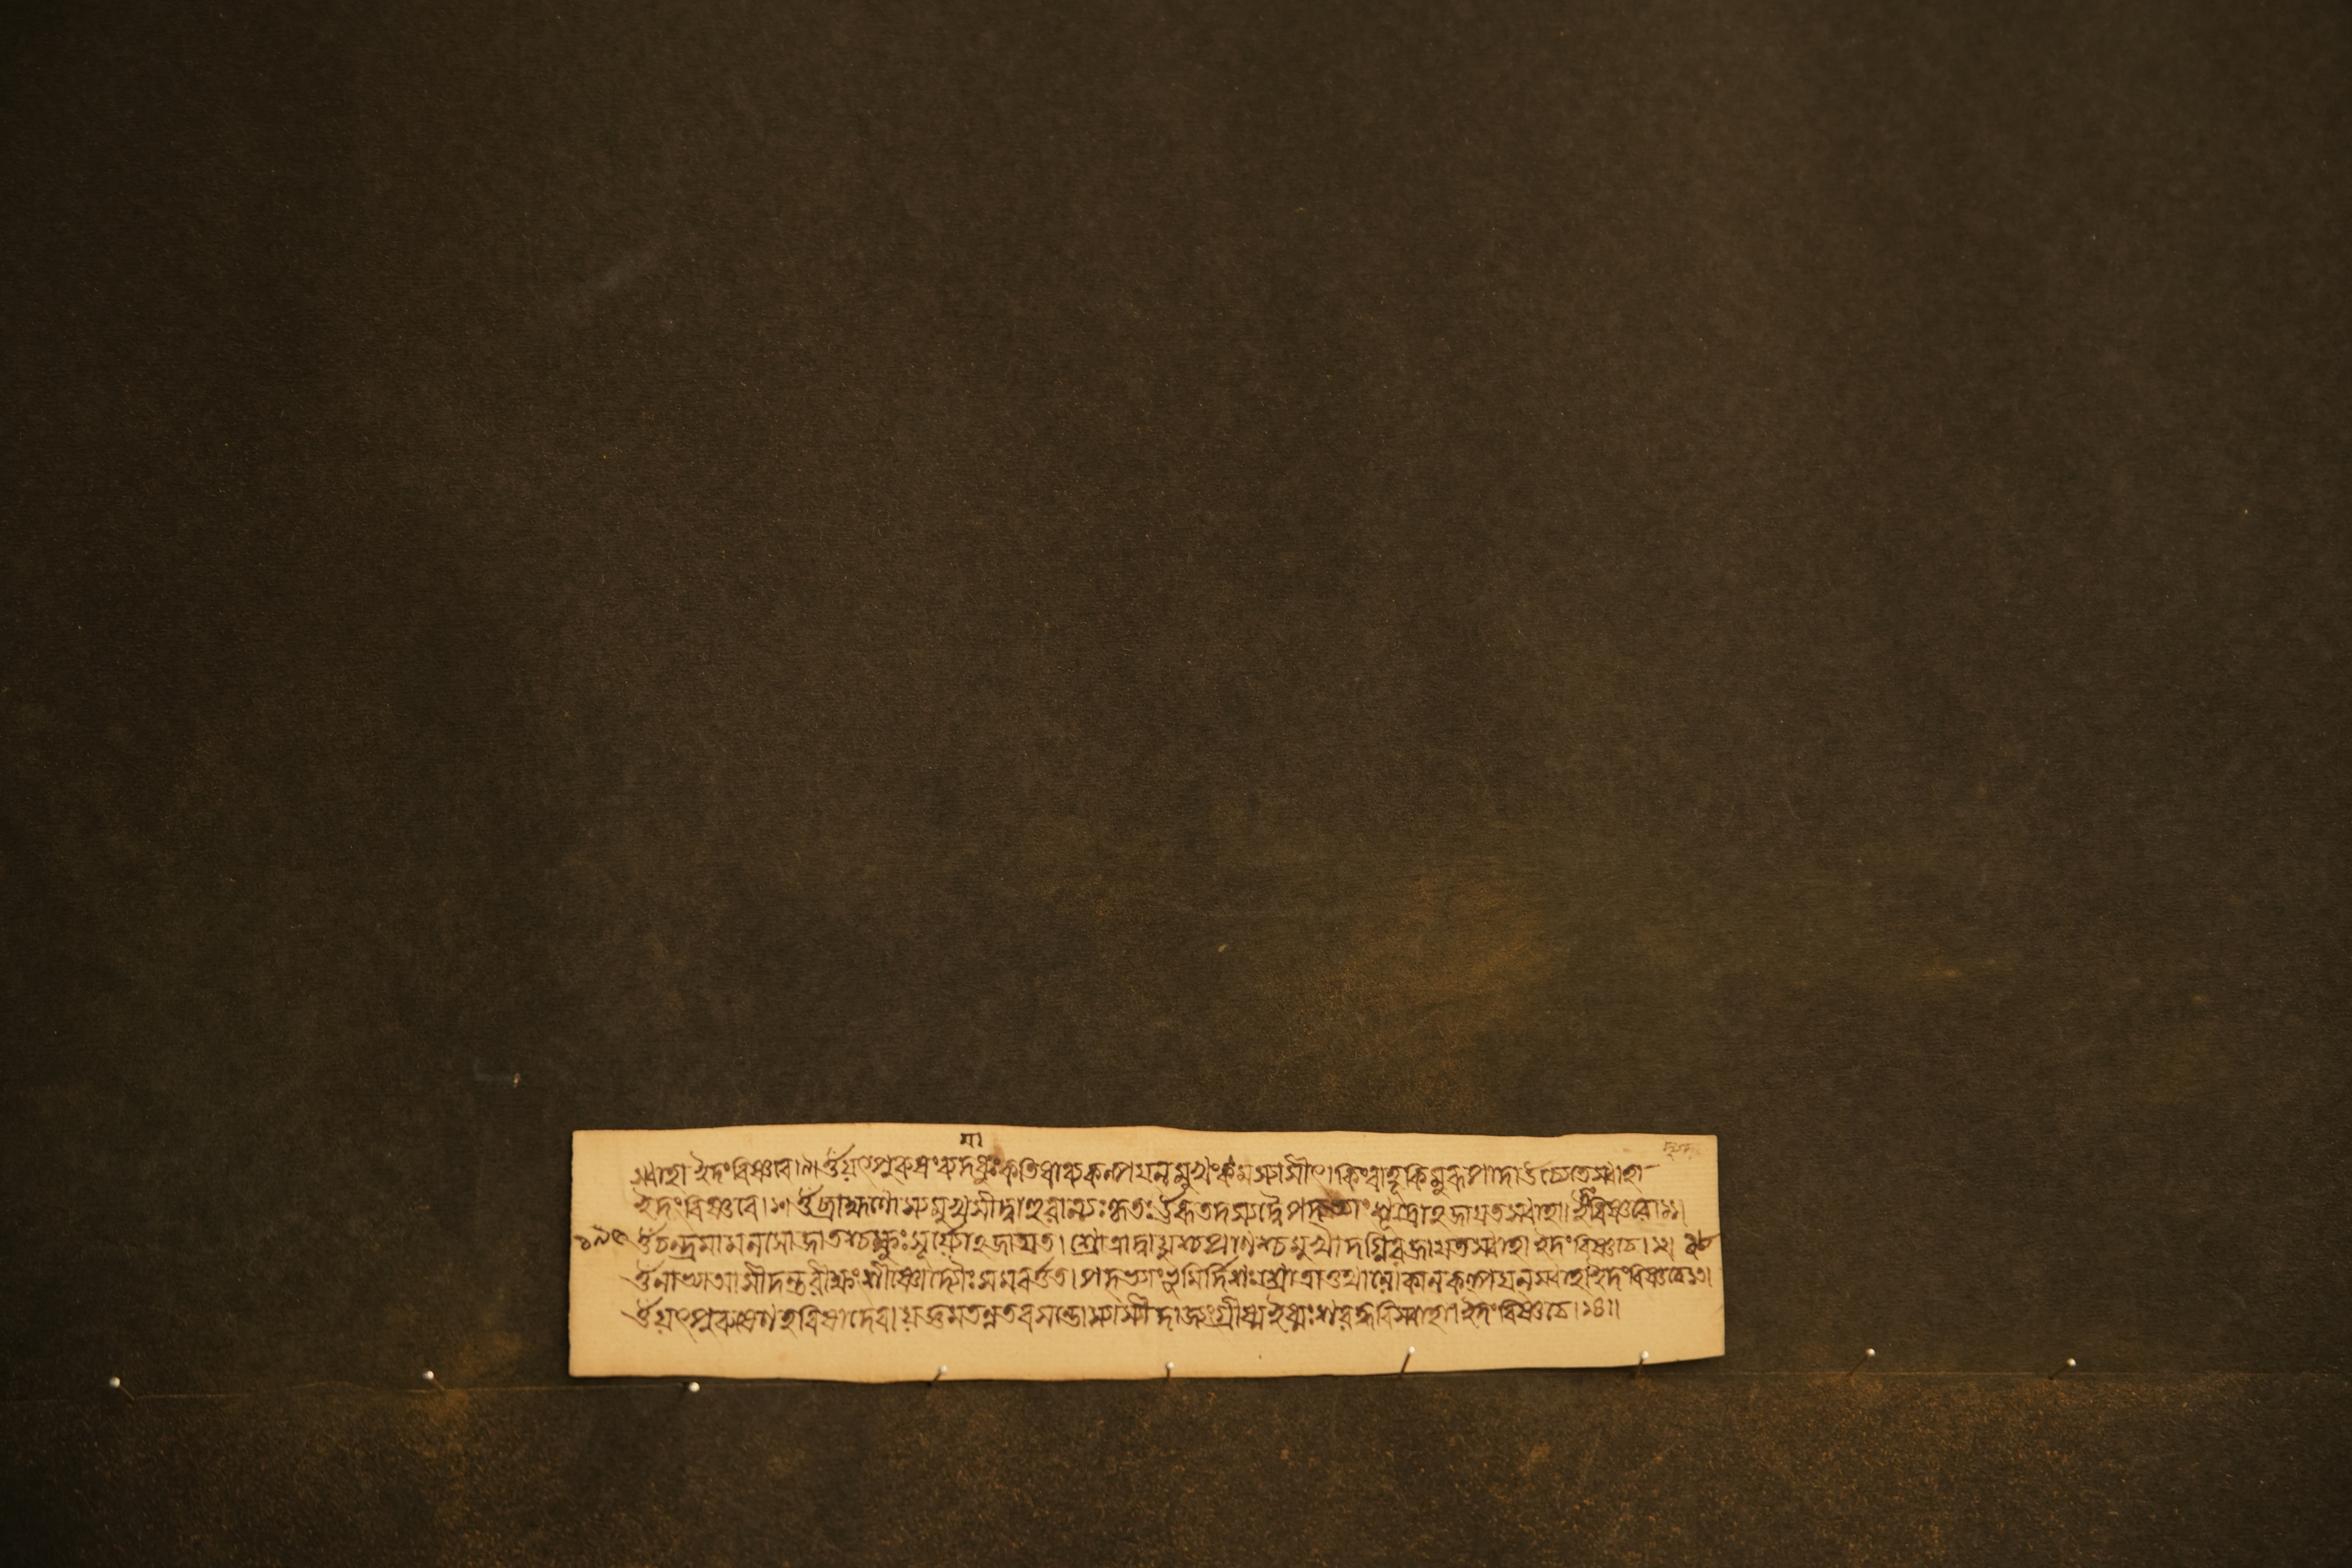 মা
স্বাহা ইদং বিষ্ণবে।৯। ওঁ যৎপুরুষং ব্যদধুঃ কতিধা ব্যকল্পয়ন্ মুখং কিমস্যাসীৎ কিং বাহূ কিমূরূ পাদা উচ্যেতে স্বাহা
ইদং বিষ্ণবে।১০। ওঁ ব্রাহ্মণোস্য মুখমাসীদ্বাহু রাজন্যঃ কৃতঃ ঊরূ তদস্য যদ্বৈশ্যঃ পদ্ভ্যাং শূদ্রোঽজায়ত স্বাহা। ইদং বিষ্ণবে।১১।
ওঁ চন্দ্রমা মনসো জাতশ্চক্ষুঃ সূর্য্যোঽজায়ত। শ্রোত্রাদ্বায়ুশ্চ প্রাণশ্চ মুখাদগ্নিরজায়ত স্বাহা ইদং বিষ্ণবে।১২।
ওঁ নাভ্যা আসীদন্তরীক্ষং শীর্ষ্ণো দ্যৌঃ সমবর্ত্তত। পদ্ভ্যাং ভূমির্দিশঃ শ্রোত্রা লোকান কল্পয়ন্ স্বাহা ইদং বিষ্ণবে।১৩।
ওঁ যৎপুরুষেণ হবিষা দেবা যজ্ঞমতন্বত বসন্তোস্যাসীদাজ্যং গ্রীষ্ম ইধ্মঃ শরদ্ধবি স্বাহা। ইদং বিষ্ণবে।১৪॥